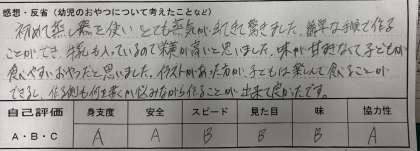 感想・反省（幼児のおやつについて考えたことなど）
初めて蒸し器を使いとても蒸気がでてきて驚きました。簡単な手順で作る
ことができ、牛乳も入っているので栄養が高いと思いました。味が甘すぎなくて子どもが
食べやすいおやつだと思いました。イラストがあった方が、子どもは楽しんで食べることが
できるし、作る側も何を書くか悩みながら作ることが出来て良かったです。
自己評価 身支度 安全 スピード 見た目 味 協力性
A・B・C A A B B B A